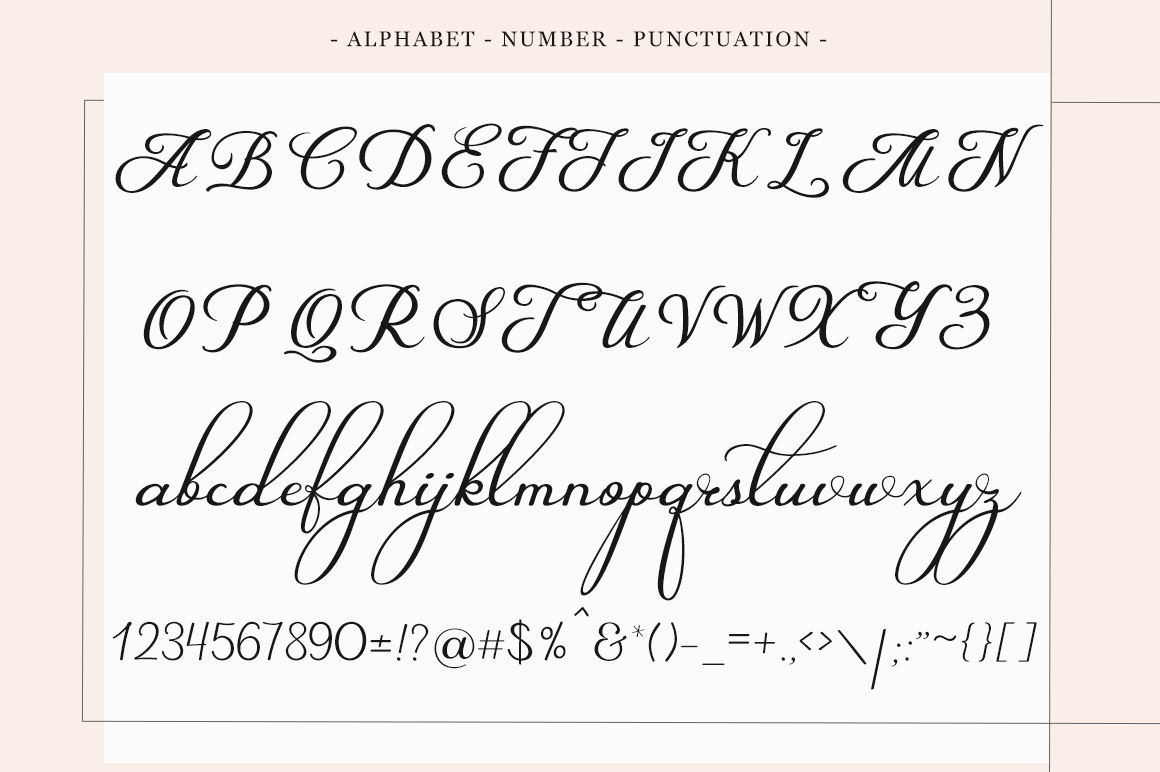 - ALPHABET - NUMBER - PUNCTUATION -
ABCDEFIJKLMN
OPQRSTUVWXYZ
abcdefghijklmnopqrstuvwxyz
1234567890±!?@#$%^&*()-_=+.,<>\|;:”~{}[]